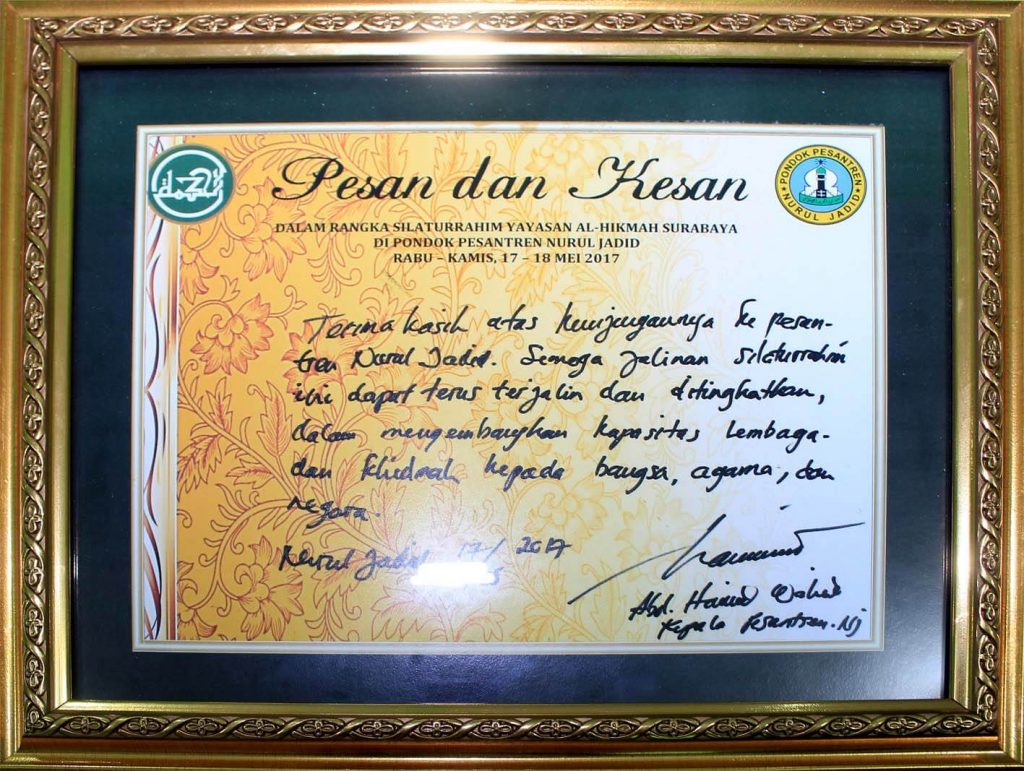 Pesan dan Kesan
DALAM RANGKA SILATURRAHIM YAYASAN AL-HIKMAH SURABAYA
DI PONDOK PESANTREN NURUL JADID
RABU – KAMIS, 17 – 18 MEI 2017
PONDOK PESANTREN
NURUL JADID
Terima kasih atas kunjungannya ke pesan-
tren Nurul Jadid. Semoga jalinan silaturrahim
ini dapat terus terjalin dan ditingkatkan,
dalam mengembangkan kapasitas lembaga-
dan khidmah kepada bangsa, agama, dan
negara.
Nurul Jadid 17/5 2017
Abd. Hamid Wahid
Kepala Pesantren. NJ